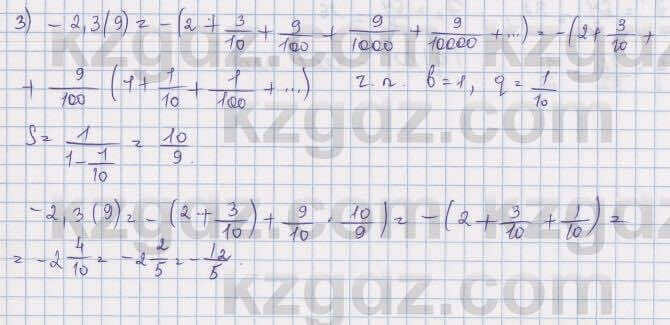 3) - 2,3(9) = - (2 + 3/10 + 9/100 + 9/1000 + 9/10000 + ...) = - (2 + 3/10 +
+ 9/100 (1 + 1/10 + 1/100 + ...) г.п. b = 1, q = 1/10
S = 1/(1 - 1/10) = 10/9.
- 2,3(9) = - (2 + 3/10) + 9/10 · 10/9) = - (2 + 3/10 + 1/10) =
= - 2 4/10 = - 2 2/5 = - 12/5.
kzgdz.com
kzgdz.com
kzgdz.com
kzgdz.com